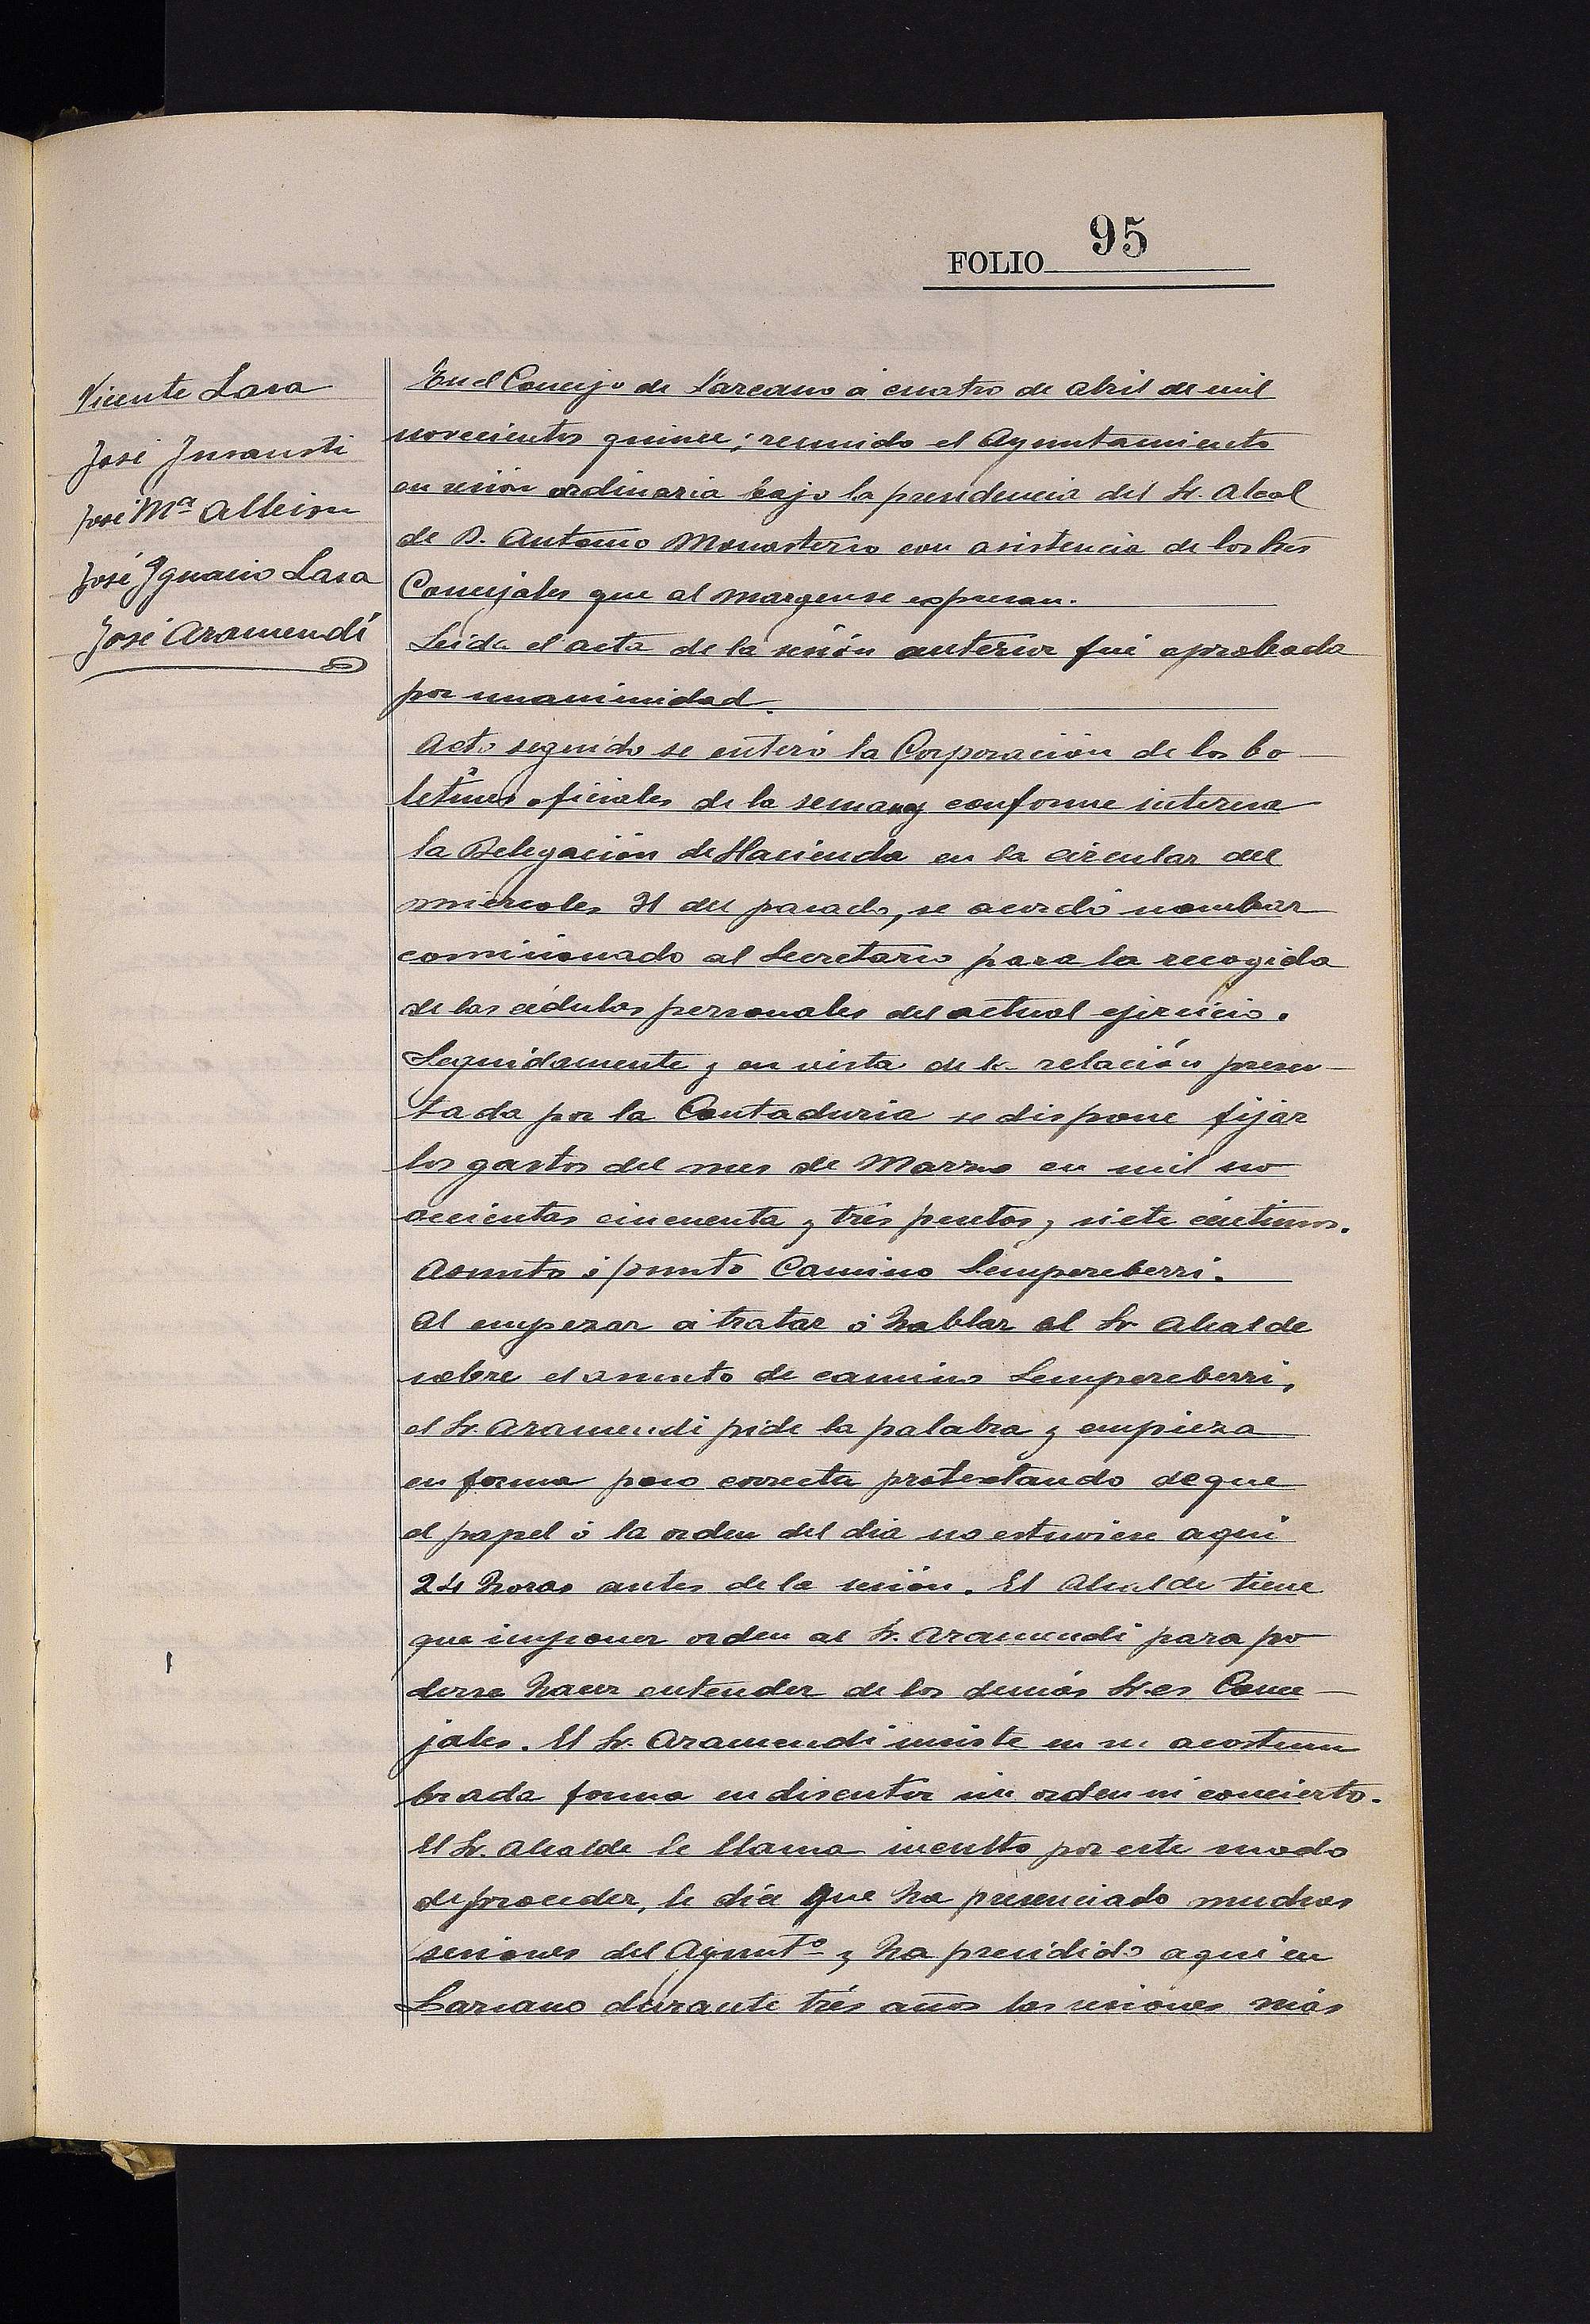 FOLIO 95
Vicente Lasa
José Insausti
José Mª Albisu
José Ignacio Lasa
José Aramendi
En el Concejo de Lazcano á cuatro de abril de mil
novecientos quince; reunido el Ayuntamiento
en sesión ordinaria bajo la presidencia del Sr. Alcal
de D. Antonio Monasterio con asistencia de los Sres
Concejales que al margen se expresan.
Leida el acta de la sesión anterior fué aprobada
por unanimidad.
Acto seguido se enteró la Corporación de los bo-
letines oficiales de la semana y conforme interesa
la Delegación de Hacienda en la circular del
miércoles 31 del pasado, se acordó nombrar
comisionado al Secretario para la recogida
de las cédulas personales del actual ejercicio.
Seguidamente y en vista de la relación presen-
tada por la Contaduria se dispone fijar
los gastos del mes de Marzo en mil no
vecientas cincuenta y tres pesetas, siete céntimos.
Asunto ó punto Camino Sempereberri.
Al empezar á tratar ó hablar el Sr Alcalde
sobre el asunto de camino Sempereberri,
el Sr. Aramendi pide la palabra y empieza
en forma poco correcta protestando de que
el papel ó la orden del dia no estuviese aqui
24 horas antes de la sesión. El Alcalde tiene
que imponer orden al Sr. Aramendi para po
derse hacer entender de los demás Sres Conce-
jales. El Sr. Aramendi insiste en su acostum
brada forma en discutir sin orden ni concierto.
El Sr. Alcalde le llama inculto por este modo
de proceder, le dice que ha presenciado muchas
sesiones del Ayuntº y ha presidido aqui en
Lazcano durante trés años las sesiones más